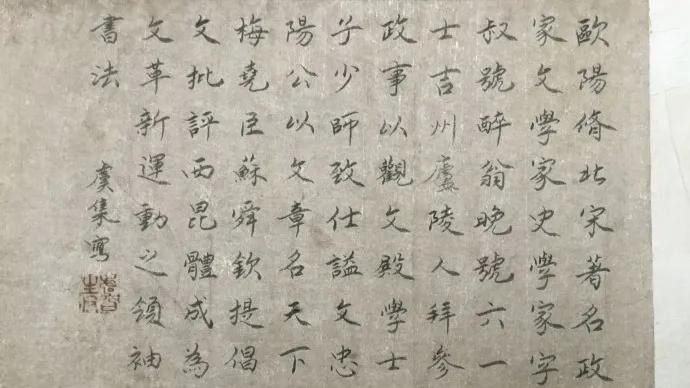 歐陽脩北宋著名政
家文學家史學家字
叔號醉翁晚號六一
士吉州廬陵人拜參
政事以觀文殿學士
子少師致仕謚文忠
陽公以文章名天下
梅堯臣蘇舜欽提倡
文批評西昆體成為
文革新運動之領袖
書法
虞集寫